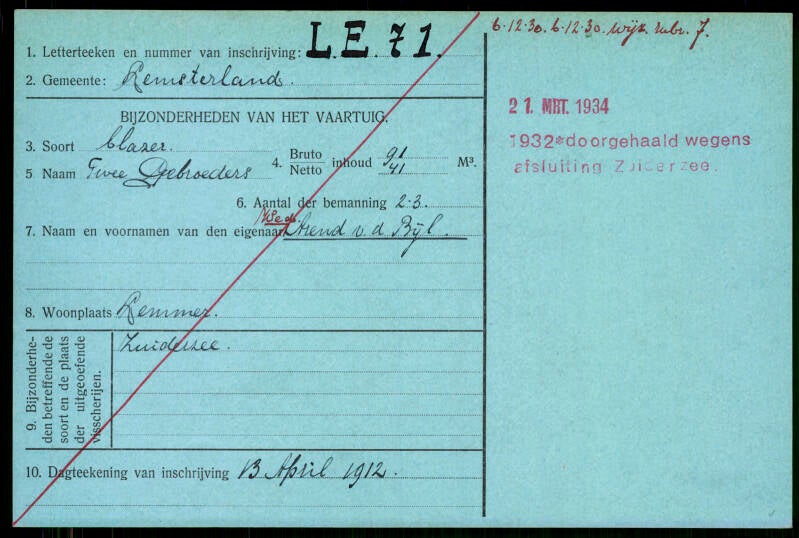 6.12.30. 6.12.30. wijz. rubr. 7.
1. Letterteeken en nummer van inschrijving: L.E. 71.
2. Gemeente: Lemsterland
BIJZONDERHEDEN VAN HET VAARTUIG.
3. Soort blazer.
4. Bruto/Netto inhoud 91/41 M³.
5 Naam Twee Gebroeders
6. Aantal der bemanning 2-3.
Wed.
7. Naam en voornamen van den eigenaar Arend v. d. Bijl.
8. Woonplaats Lemmer.
9. Bijzonderhe-
den betreffende de
soort en de plaats
der uitgeoefende
visscherijen.
Zuiderzee.
10. Dagteekening van inschrijving 13 April 1912.
21. MRT. 1934
1932*doorgehaald wegens
afsluiting Zuiderzee.